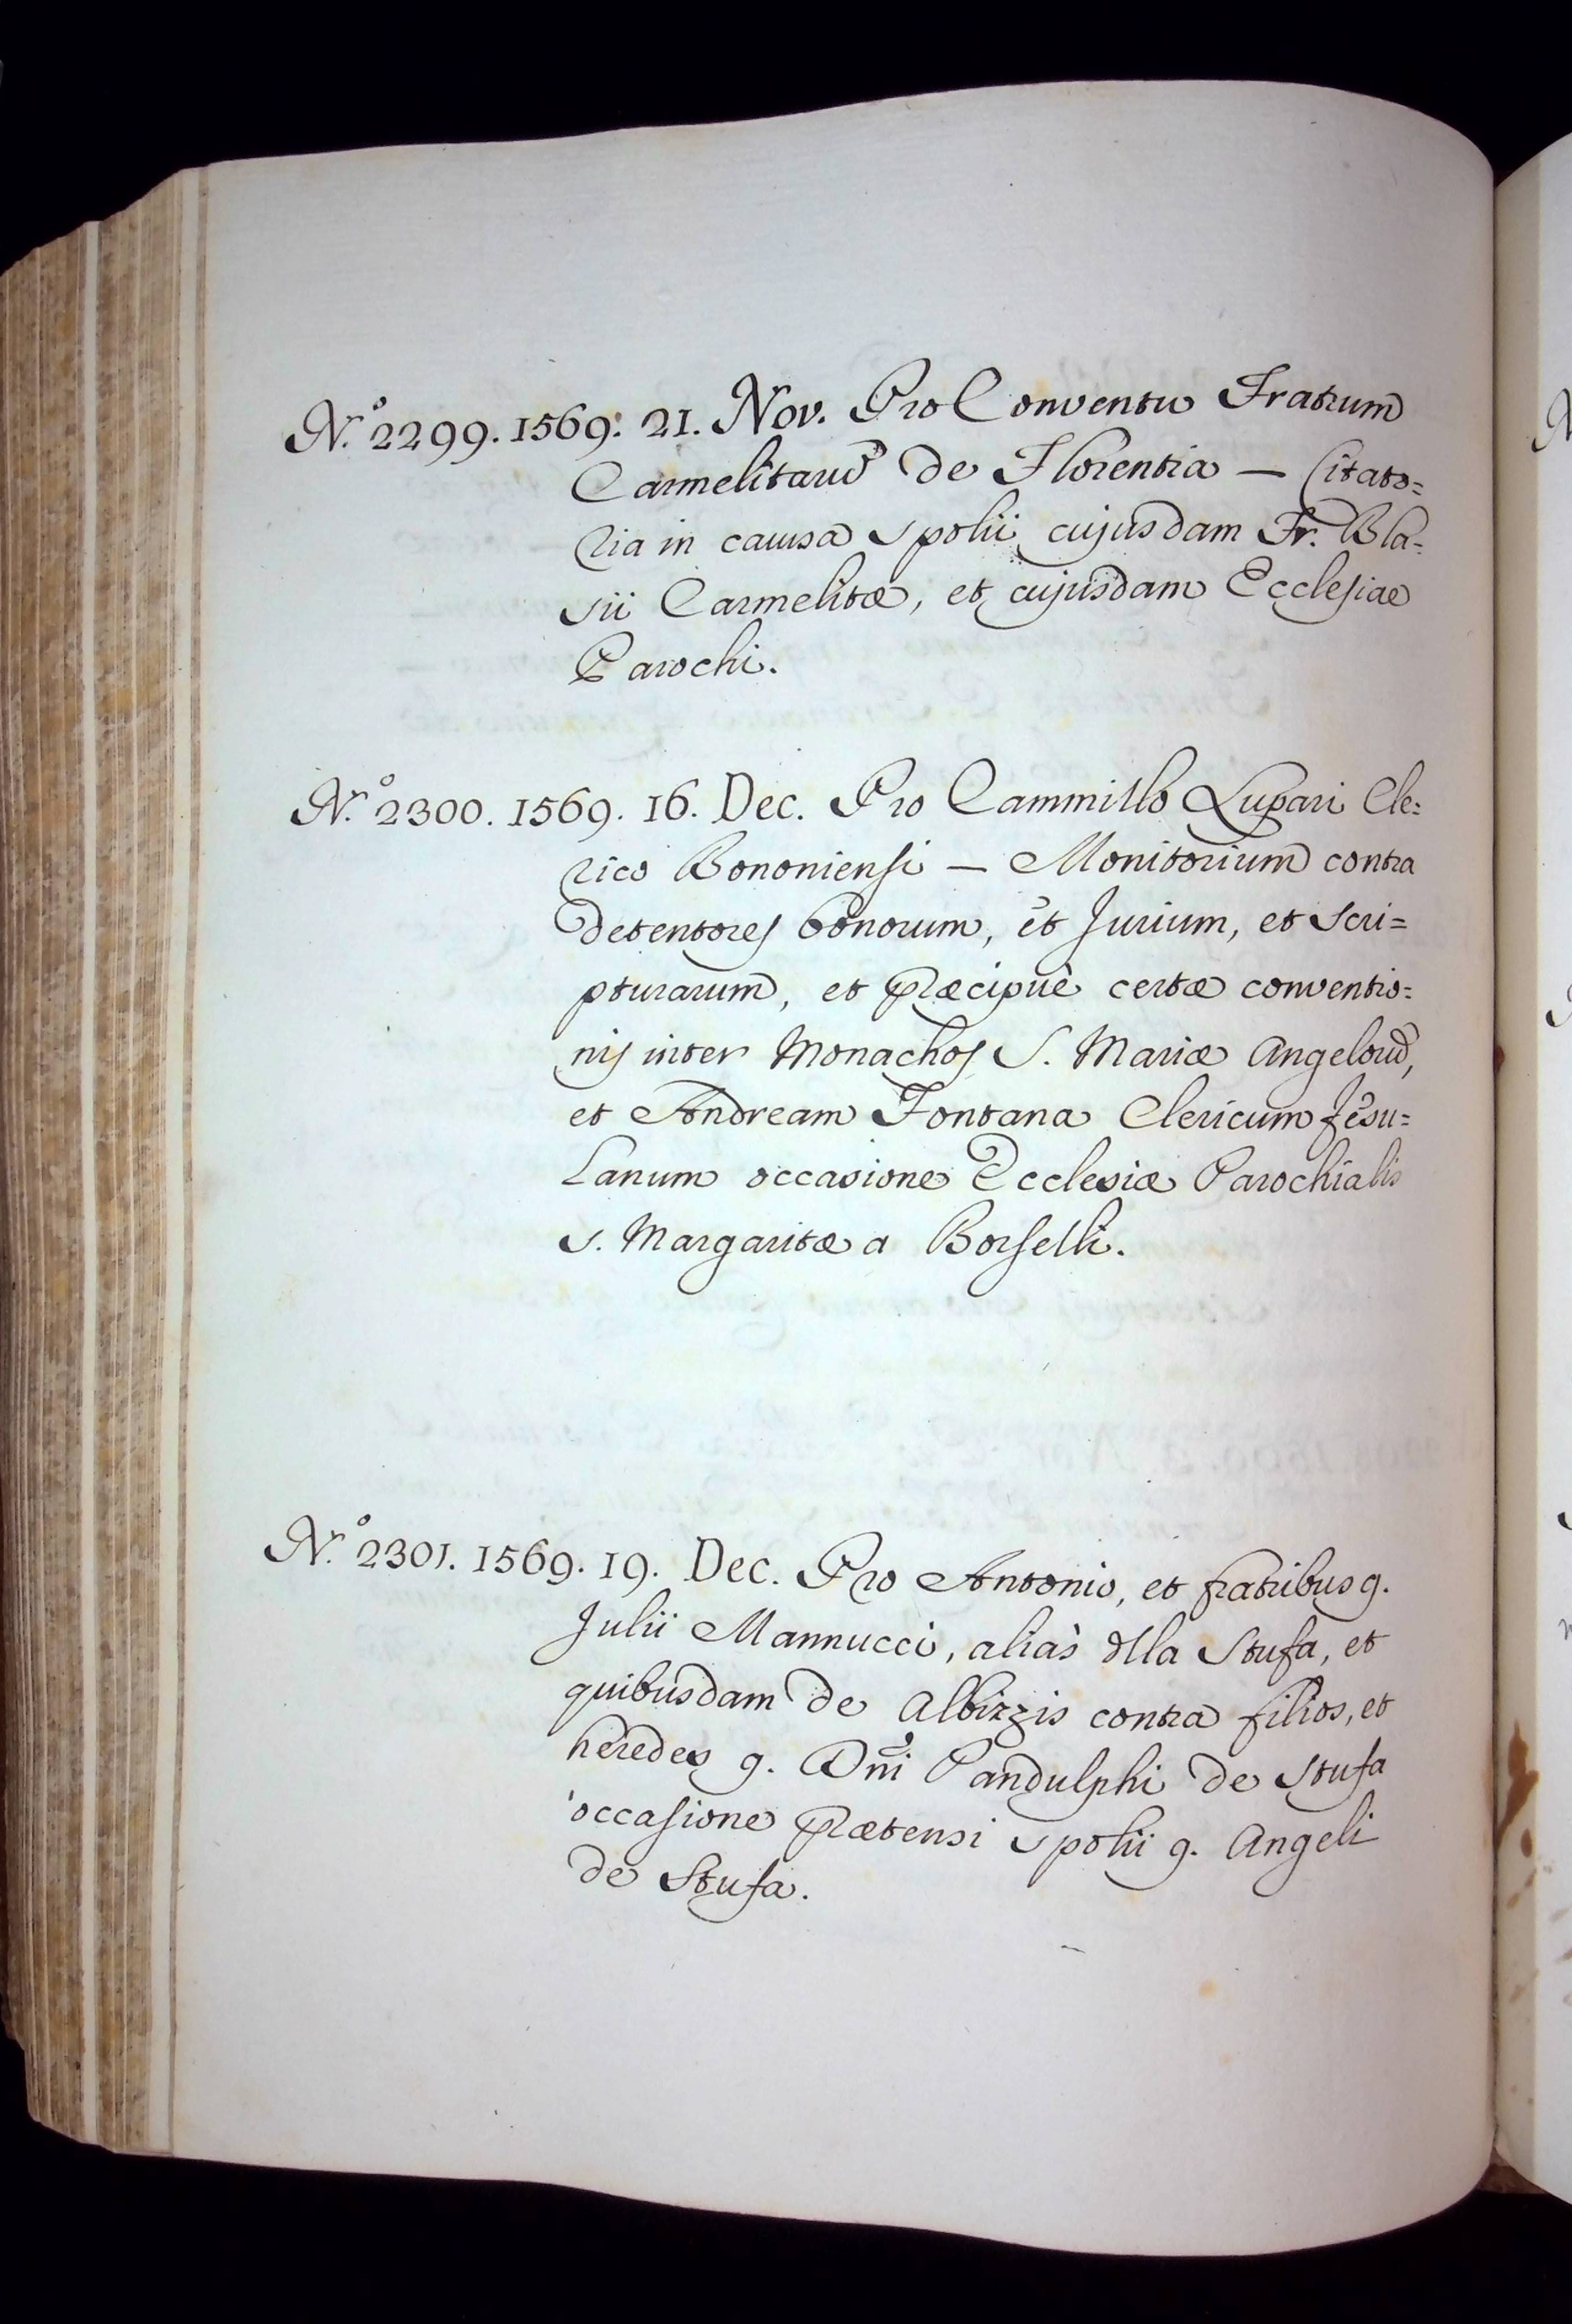 N.º 2299. 1569. 21. Nov. Pro Conventu Fratrum
Carmelitarũ de Florentia — Citato=
ria in causa spolii cujusdam Fr. Bla=
sii Carmelitæ, et cujusdam Ecclesiae
Parochi.
N.º 2300. 1569. 16. Dec. Pro Cammillo Lupari Cle=
rico Bononiensi — Monitorium contra
detentores bonorum, et Jurium, et Scri=
pturarum, et præcipuè certæ conventio=
nis inter Monachos S. Mariæ Angelorũ,
et Andream Fontana Clericum Fesu=
lanum occasione Ecclesiæ Parochialis
S. Margaritæ a Borselli.
N.º 2301. 1569. 19. Dec. Pro Antonio, et fratribus q.
Julii Mannucci, aliàs dlla Stufa, et
quibusdam de Albizzis contra filios, et
heredes q. Dñi Pandulphi de Stufa
occasione prætensi spolii q. Angeli
de Stufa.